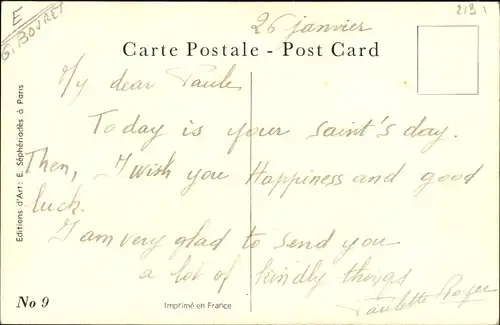 E
G. BOURET
26 janvier
2191
Carte Postale - Post Card
My dear Paule
Today is your saint's day.
Then, I wish you Happiness and good
luck.
I am very glad to send you
a lot of kindly things
Paulette Roger
Editions d'Art: E. Séphériadès à Paris
No 9
Imprimé en France